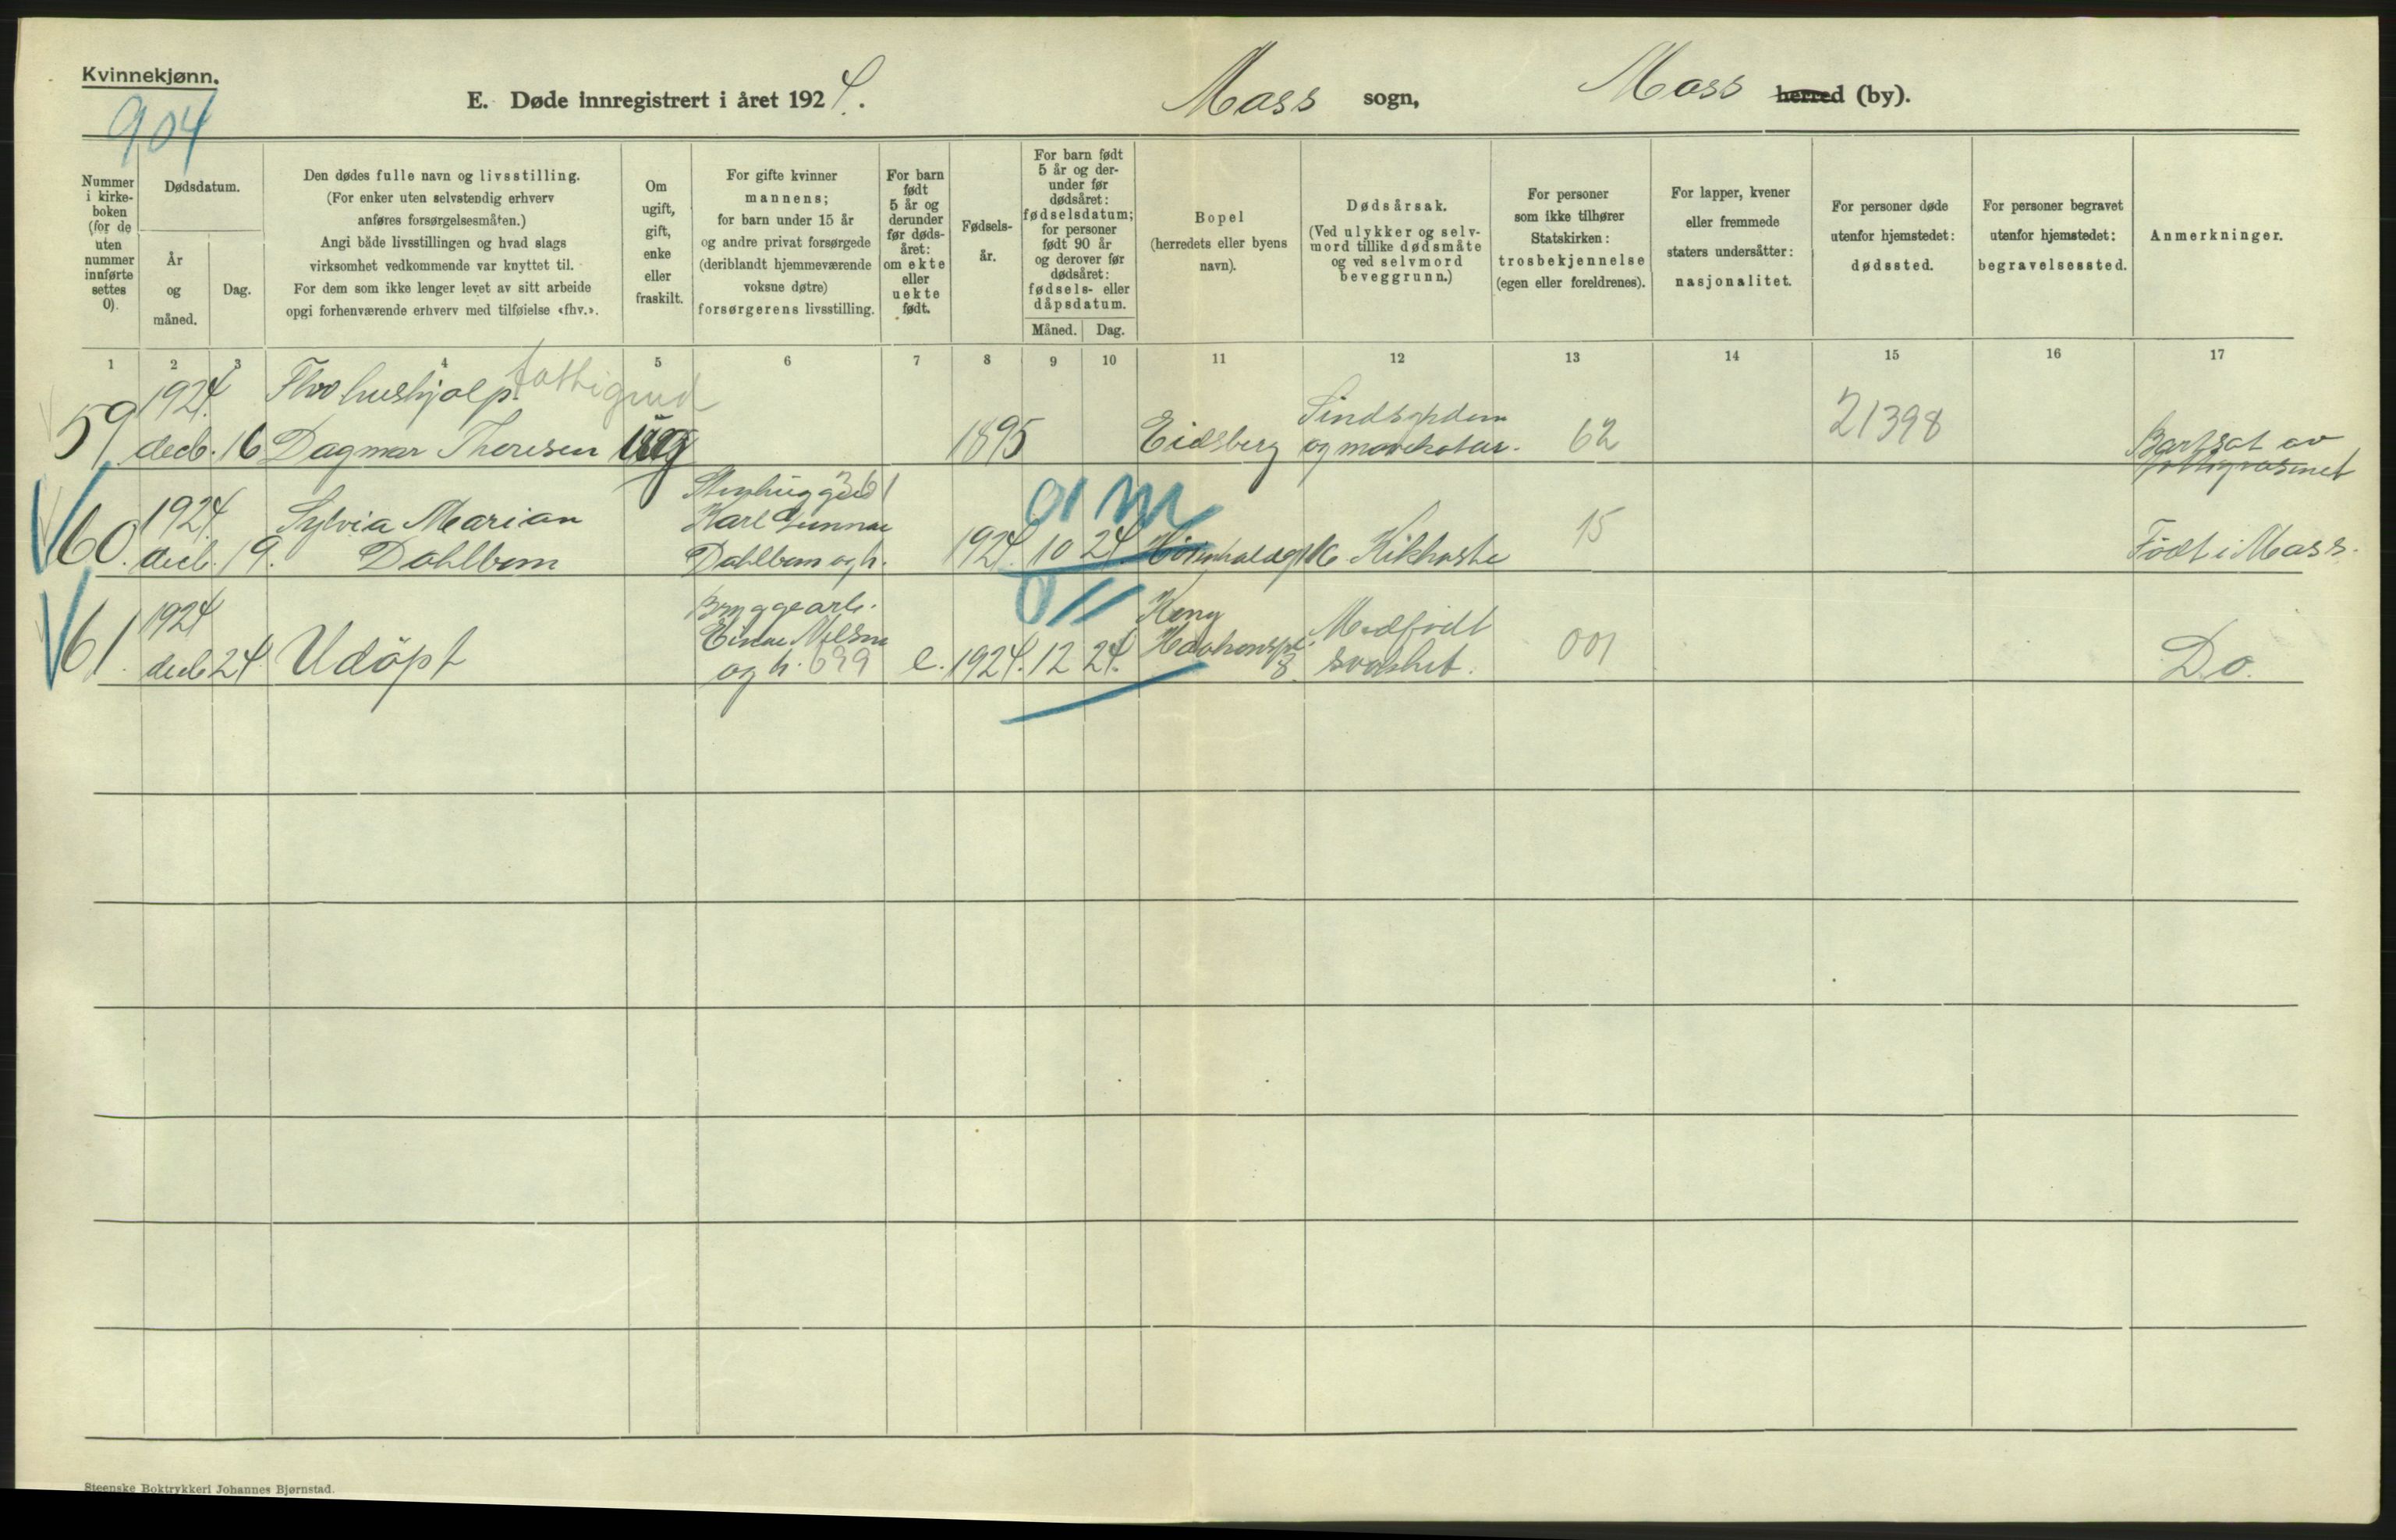 Kvinnekjønn.
904
E. Døde innregistrert i året 1924.
Moss sogn,
Moss herred (by).
Nummer
i kirke-
boken
(for de
uten
nummer
innførte
settes
0).
Dødsdatum.
År
og
måned.
Dag.
Den dødes fulle navn og livsstilling.
(For enker uten selvstendig erhverv
anføres forsørgelsesmåten.)
Angi både livsstillingen og hvad slags
virksomhet vedkommende var knyttet til.
For dem som ikke lenger levet av sitt arbeide
opgi forhenværende erhverv med tilføielse «fhv.».
Om
ugift,
gift,
enke
eller
fraskilt.
For gifte kvinner
mannens;
for barn under 15 år
og andre privat forsørgede
(deriblandt hjemmeværende
voksne døtre)
forsørgerens livsstilling.
For barn
født
5 år og
derunder
før døds-
året:
om ekte
eller
uekte
født.
Fødsels-
år.
For barn født
5 år og der-
under før
dødsåret:
fødselsdatum;
for personer
født 90 år
og derover før
dødsåret:
fødsels- eller
dåpsdatum.
Måned.
Dag.
Bopel
(herredets eller byens
navn).
Dødsårsak.
(Ved ulykker og selv-
mord tillike dødsmåte
og ved selvmord
beveggrunn.)
For personer
som ikke tilhører
Statskirken:
trosbekjennelse
(egen eller foreldrenes).
For lapper, kvener
eller fremmede
staters undersåtter:
nasjonalitet.
For personer døde
utenfor hjemstedet:
dødssted.
For personer begravet
utenfor hjemstedet:
begravelsessted.
Anmerkninger.
1 2 3 4 5 6 7 8 9 10 11 12 13 14 15 16 17
1924. Fhv hushjelp fattigund
59 decb. 16 Dagmar Thoresen ug 1895 Eidsberg
Sindsygdom
og 62 21398
Bortsat av
fattigvæsenet
Stenhugger 361
1924 Sylvia Marian Karl Gunnar
01 m
60. decb. 19. Dahlbom Dahlbom og h. 1924. 10 24 16 Kikhoste 15 Født i Moss.
0
1924 Bryggearb. Kong
61. decb 24 Udöpt Einar Nilsen
og h. 699 e. 1924. 12 24. Haakonspl.
8.
Medfödt
svakhet. 001 Do.
Steenske Boktrykkeri Johannes Bjørnstad.